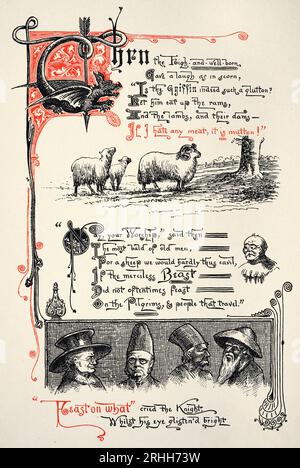 Then
the High-and-well-born,
Gave a laugh as in scorn,
"Is thy Griffin indeed such a glutton?
Let him eat up the rams,
And the lambs, and their dams—
If I hate any meat, it is mutton!"
"O, your Worship," said then
The most bald of old men,
"For a sheep we would hardly thus cavil,
If the merciless Beast
Did not oftentimes feast
On the Pilgrims, & people that travel."
"Feast on what" cried the Knight,
Whilst his eye glisten'd bright
alamy
Image ID: 2RHH73W
www.alamy.com